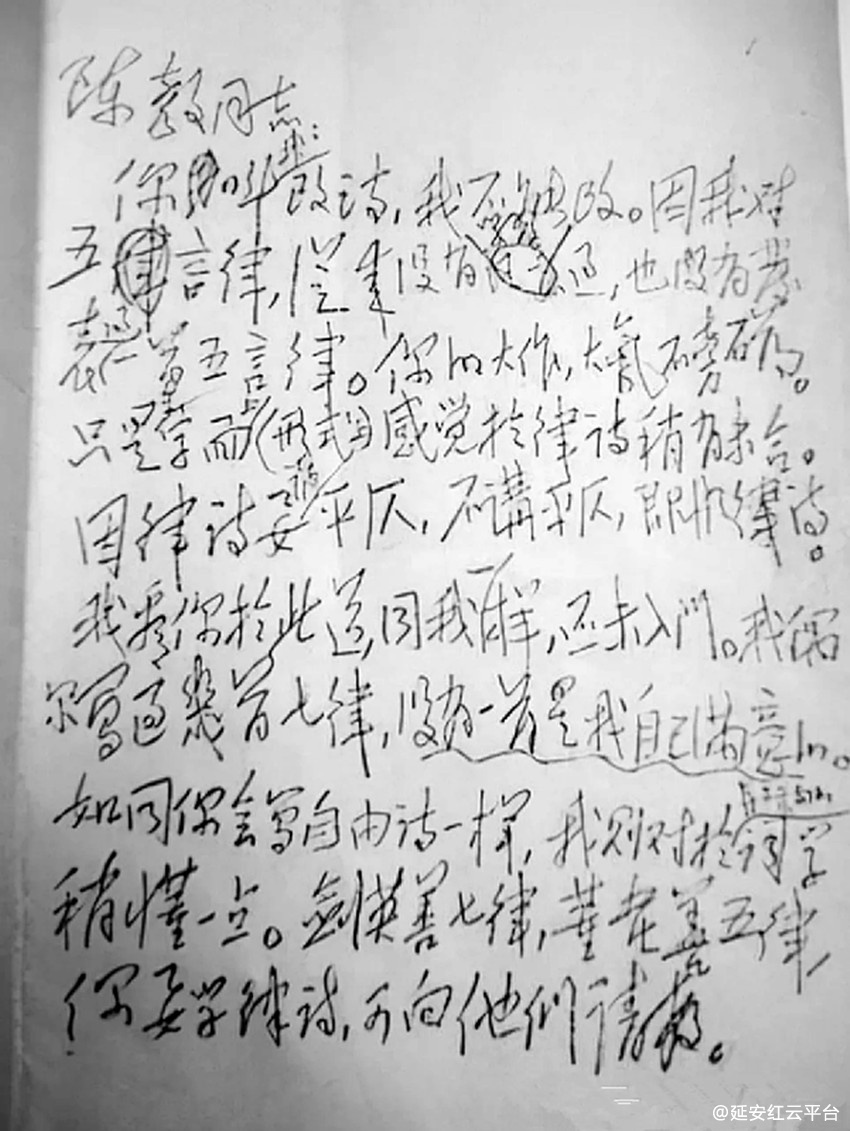 陈毅同志：
你叫我改诗，我不能改。因我对
五言律，从来没有学习过，也没有发
表过一首五言律。你的大作，大气磅礴。
只是在字面上(形式上)感觉于律诗稍有未合。
因律诗要讲平仄，不讲平仄，即非律诗。
我看你于此道，同我一样，还未入门。我偶
尔写过几首七律，没有一首是我自己满意的。
如同你会写自由诗一样，我则对于长短句的词学
稍懂一点。剑英善七律，董老善五律，
你要学律诗，可向他们请教。
@延安红云平台